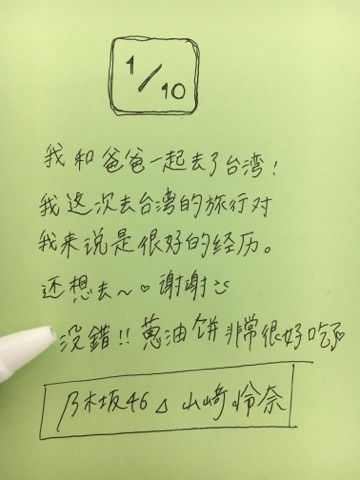 1/10
我和爸爸一起去了台湾！
我这次去台湾的旅行对
我来说是很好的经历。
还想去～♡谢谢☺
没錯!! 蔥油饼非常很好吃
乃木坂46△山崎怜奈